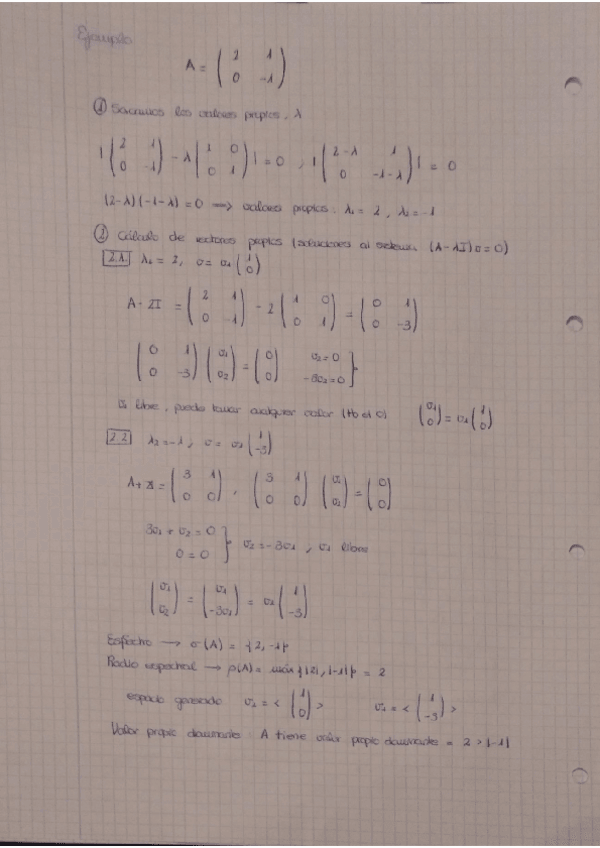 Ejemplo
A = ( 2 1 ; 0 -1 )
① Sacamos los valores propios, λ
| ( 2 1 ; 0 -1 ) - λ ( 1 0 ; 0 1 ) | = 0 , | ( 2-λ 1 ; 0 -1-λ ) | = 0
(2-λ)(-1-λ) = 0 ⟹ valores propios: λ₁ = 2, λ₂ = -1
② Cálculo de vectores propios (soluciones al sistema (A-λI)v = 0)
2.1. λ₁ = 2, v = v₁ ( 1 ; 0 )
A - 2I = ( 2 1 ; 0 -1 ) - 2 ( 1 0 ; 0 1 ) = ( 0 1 ; 0 -3 )
( 0 1 ; 0 -3 ) ( v₁ ; v₂ ) = ( 0 ; 0 ) v₂ = 0 ; -3v₂ = 0 }
v₁ libre, puede tomar cualquier valor ( el 0) ( v₁ ; 0 ) = v₁ ( 1 ; 0 )
2.2 λ₂ = -1, v = v₁ ( 1 ; -3 )
A + I = ( 3 1 ; 0 0 ) , ( 3 1 ; 0 0 ) ( v₁ ; v₂ ) = ( 0 ; 0 )
3v₁ + v₂ = 0 ; 0 = 0 } v₂ = -3v₁ , v₁ libre
( v₁ ; v₂ ) = ( v₁ ; -3v₁ ) = v₁ ( 1 ; -3 )
Espectro ⟶ σ(A) = {2, -1}
Radio espectral ⟶ ρ(A) = máx {|2|, |-1|} = 2
espacio generado v₁ = < ( 1 ; 0 ) > = < ( 1 ; -3 ) >
Valor propio dominante A tiene valor propio dominante = 2 > |-1|